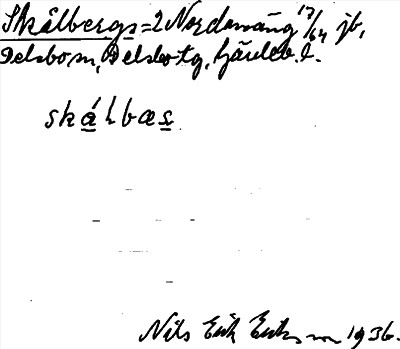 Skålbergs=2 Nordanäng 17/64 jb,
Delsbo sn, Delsbo tg, Gävleb. l.
skálbas
Nils Erik Eriksson 1936.